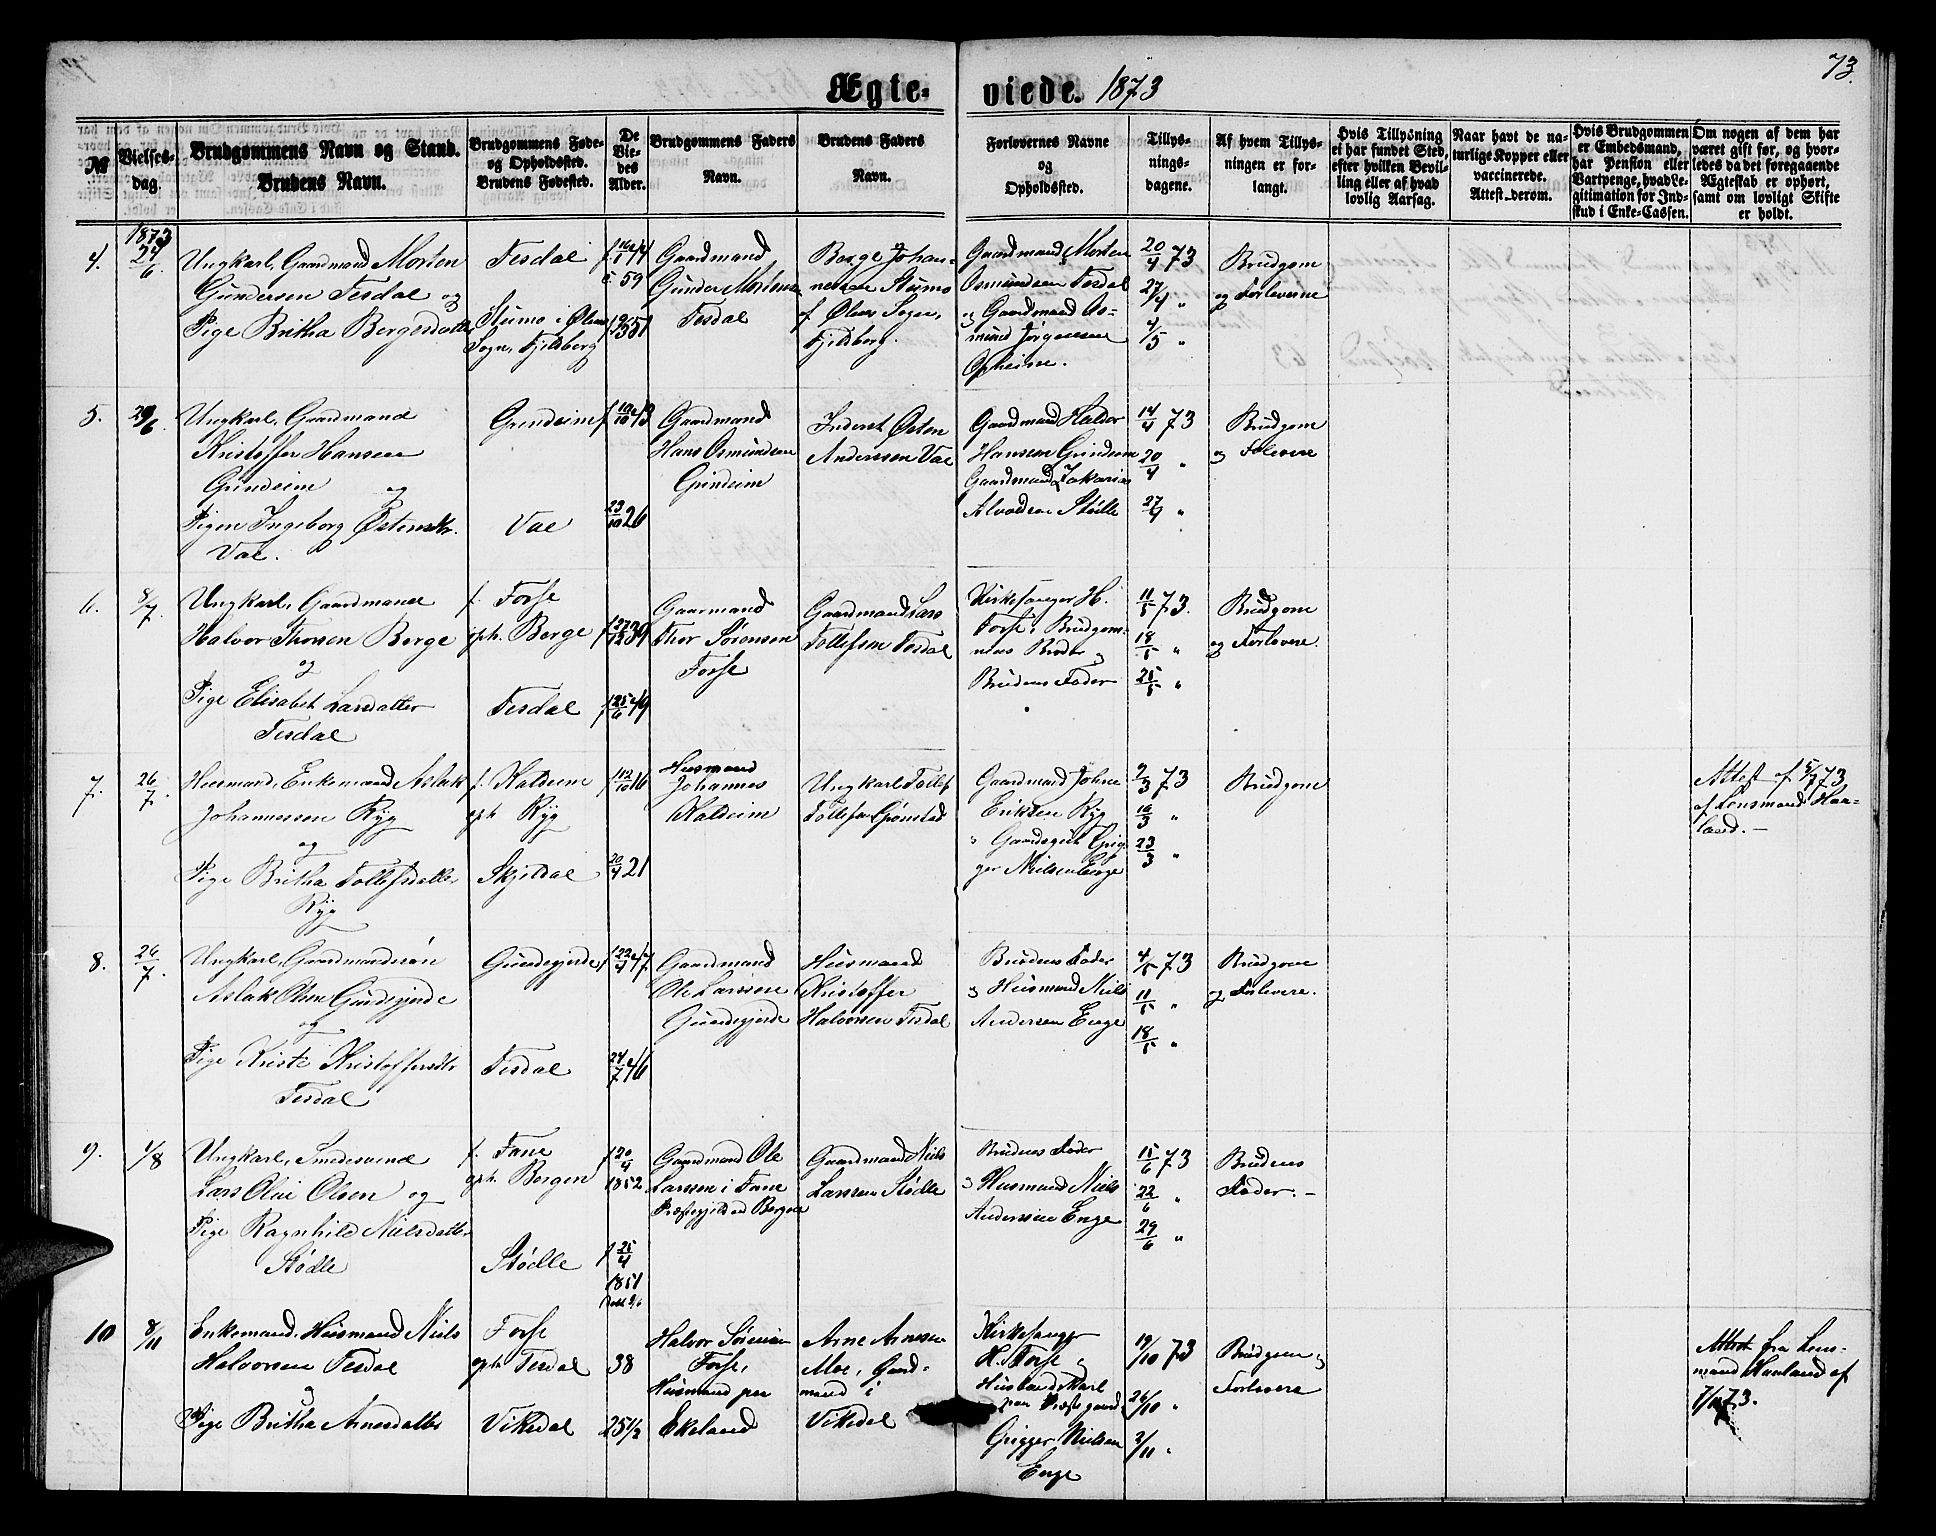 73.
Ægteviede. 1873
№
Vielsesdag.
Brudgommens Navn og Stand.
Brudens Navn.
Brudgommens Føde- og Opholdssted.
Brudens Fødested.
De Viedes Alder.
Brudgommens Faders Navn.
Brudens Faders Navn.
Forlovernes Navne og Opholdssted.
Tillysningsdagene.
Af hvem Tillysningen er forlangt.
Hvis Tillysning ei har fundet Sted, efter hvilken Bevilling eller af hvad lovlig Aarsag.
Naar havt de naturlige Kopper eller vaccinerede. Attest derom.
Hvis Brudgommen er Embedsmand, har Pension eller Vartpenge, hvad Legitimation for Indskud i Enke-Cassen.
Om nogen af dem har været gift før, og hvorledes da det foregaaende Ægteskab er ophørt, samt om lovligt Skifte er holdt.
1873
4. 24/6
Ungkarl, Gaardmand Morten
Gundersen Tesdal og
Pige Britha Bergesdatter
Tesdal
Stumo i Ølens
Sogn, Fjeldberg
Gaardmand
Gunder Mortens
Tesdal
Berge Johan-
nesen Stumo
f. Ølens Sogn,
Fjeldberg.
Gaardmand Morten
Osmundsen Tesdal
og Gaardmand Os-
mund Jørgensen
Opheim.
20/4 73
27/4 "
4/5 "
Brudgom
og Forloverne
5. 29/6.
Ungkarl, Gaardmand
Kristoffer Hansen
Grindeim og
Pigen Ingeborg Østensdtr.
Vae.
Grindeim
Vae
23/10 26
Gaardmand
Hans Osmundsen
Grindeim
Inderst Østen
Anderssen Vae
Gaardmand Haldor
Hansen Grindeim
Gaardmand Zakarias
Alvadsen Stølle
14/4 73
20/4 "
27/4 "
Brudgom
og Folevere
6. 8/7.
Ungkarl, Gaardmand
Halvor Thorsen Berge
og
Pige Elisabet Larsdatter
Tesdal
f. Forse
oph. Berge
Tesdal
Gaarmand
Thor Sørensen
Forse
Gaardmand Lars
Tollefsen Tesdal
Kirkesanger H.
Forse, Brudgom-
mens Broder og
Brudens Fader
11/5 73.
18/5 "
25/5 "
Brudgom
og Forlovere.
7. 26/7.
Husmand, Enkemand Aslak
Johannessen Ryg
og
Pige Britha Tollefsdatter
Ryg
f. Kaldeim
oph Ryg
Skjeldal
20/4 21
Husmand
Johannes
Kaldeim
Ungkarl Tollef
Tollefsen Grønstad
Gaardmand Johne
Eriksen Ryg
" Gaardsgut Grig-
ger Nielsen Enge
9/3 73
16/3 "
23/3 "
Brudgom
Attest af 5/7 73
af Lensmand Haa-
land. —
8. 26/7.
Ungkarl, Gaardmandssøn
Aslak Olsen Gundegjerde
og
Pige Kristi Kristoffersdtr
Tesdal
Gundegjerde
Tesdal
Gaardmand
Ole Larssen
Gundegjerde
Husmand
Kristoffer
Halvorsen Tesdal
Brudens Fader
og Husmand Niels
Andersen Enge
4/5 73
11/5 "
18/5 "
Brudgom
og Forlovere.
9. 1/8
Ungkarl, Smedesvend
Lars Olai Olsen og
Pige Ragnhild Nielsdatter
Stødle
f. Fane
oph. Bergen
Stødle
f 20/4
1852
f 25/4
1851
Gaardmand Ole
Larssen i Fane
Præstegjeld ved Bergen
Gaardmand Niels
Larssen Stødle
Brudens Fader
og Husmand Niels
Andersen Enge
15/6 73
22/6 "
29/6 "
Brudens
Fader. —
10 8/11
Enkemand, Husmand Niels
Halvorsen Tesdal
og
Pige Britha Arnesdatter
Forse
oph Tesdal
Vikedal
38
25 1/2
Halvor Sørensen
Forse,
Husmand paa
Ekeland
Arne Arnesen
Moe, Gaard-
mand i
Vikedal
Kirkesanger
H. Forse og
Husbondskarl
paa Præstegaard
Grigger Nielsen
Enge
19/10 73
26/10 "
2/11 "
Brudgom og
Forlovere
Attest fra Lens-
mand Haaland af